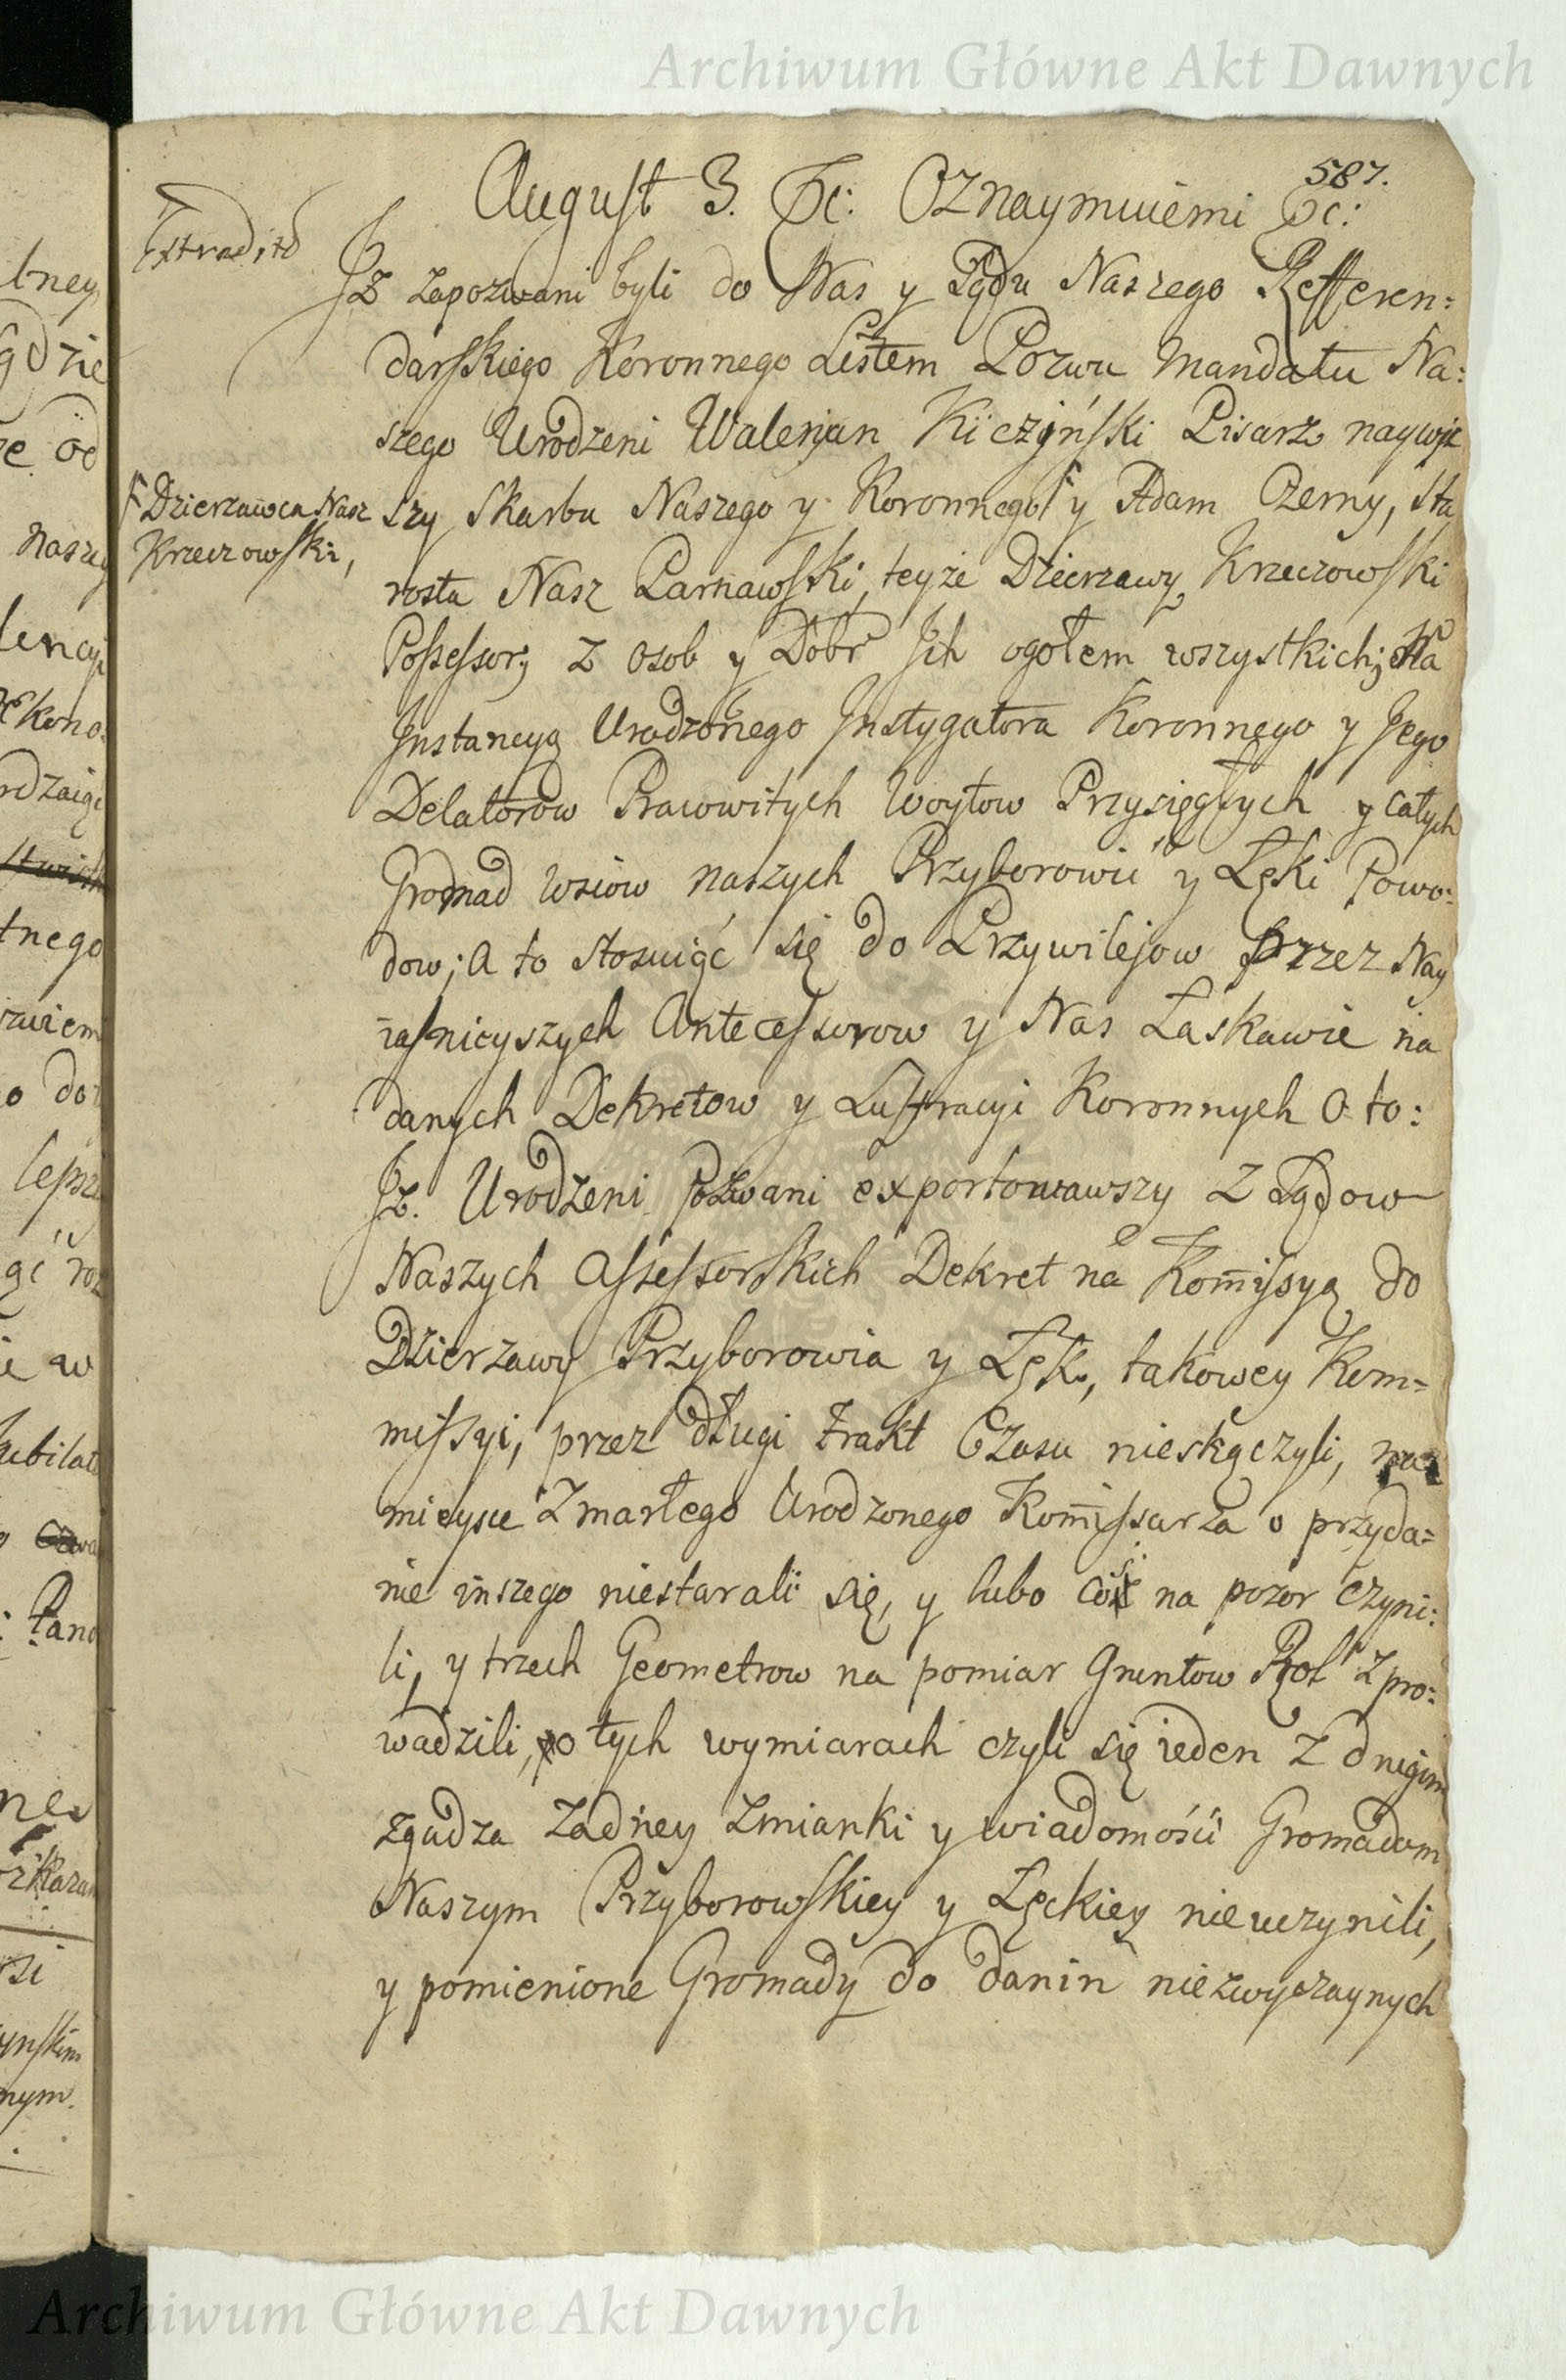 Archiwum Główne Akt Dawnych
587.
August 3. &c: Oznaymuiemi &c:
Extraditō
Jż zapozwani byli do Nas y Sądu Naszego Refferen:
darskiego Koronnego Listem Pozwu Mandatu Na:
szego Urodzeni Waleryan Kiczyński Pisarz naywyż
szy Skarbu Naszego y Koronnego y Adam Czerny, Sta
Dzierzawca Nasz
Krzeczowski,
rosta Nasz Parnawski, teyże Dzierzawy Krzeczowski
Possessory z Osob y Dobr Jch ogołem wszystkich; Na
Jnstancyą Urodzonego Jnstygatora Koronnego y Jego
Delatorow Pracowitych Woytow Przysięgłych y całych
Gromad Wsiow naszych Przyborowia y Łęki Powo:
dow; A to stosuiąc się do Przywilejow przez Nay
iaśnieyszych Antecessorow y Nas Łaskawie na
danych Dekretow y Lustracyi Koronnych O to:
Jż Urodzeni Pozwani exportowawszy z Sądow
Naszych Assessorskich Dekret na Kom̄isyą do
Dzierzawy Przyborowia y Łęk, takowey Kom=
missyi, przez długi trakt Czasu nieskączyli, na
mieysce Zmarłego Urodzonego Kom̄issarza o przyda=
nie inszego niestarali się, y lubo coś na pozor czyni:
li, y trzech Geometrow na pomiar Gruntow Rol zpro:
wadzili, o tych wymiarach czyli się ieden z drugim
zgadza Zadney Zmianki y wiadomości Gromadom
Naszym Przyborowskiey y Łęckiey nieuczynili,
y pomienione Gromady do danin niezwyczaynych
Archiwum Główne Akt Dawnych